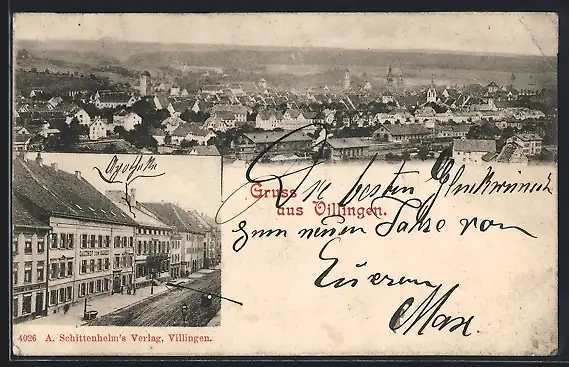 Apotheke
Gruss
aus Villingen.
Die besten Glückwünsch
zum neuen Jahre von
Eueren
Max
GASTHOF ZUM
4026 A. Schittenhelm's Verlag, Villingen.